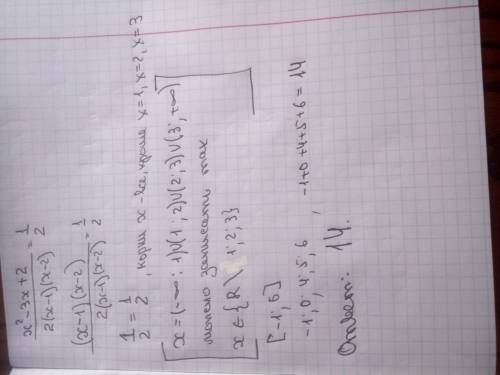 x²-3x+2 / 2(x-1)(x-2) = 1/2
(x-1)(x-2) / 2(x-1)(x-2) = 1/2
1/2 = 1/2, корни x - все, кроме x=1, x=2, x=3
x = (-∞; 1)∪(1; 2)∪(2; 3)∪(3; +∞)
можно записать так
x ∈ {R \ 1; 2; 3}
[-1; 6]
-1; 0; 4; 5; 6, -1+0+4+5+6=14
Ответ: 14.